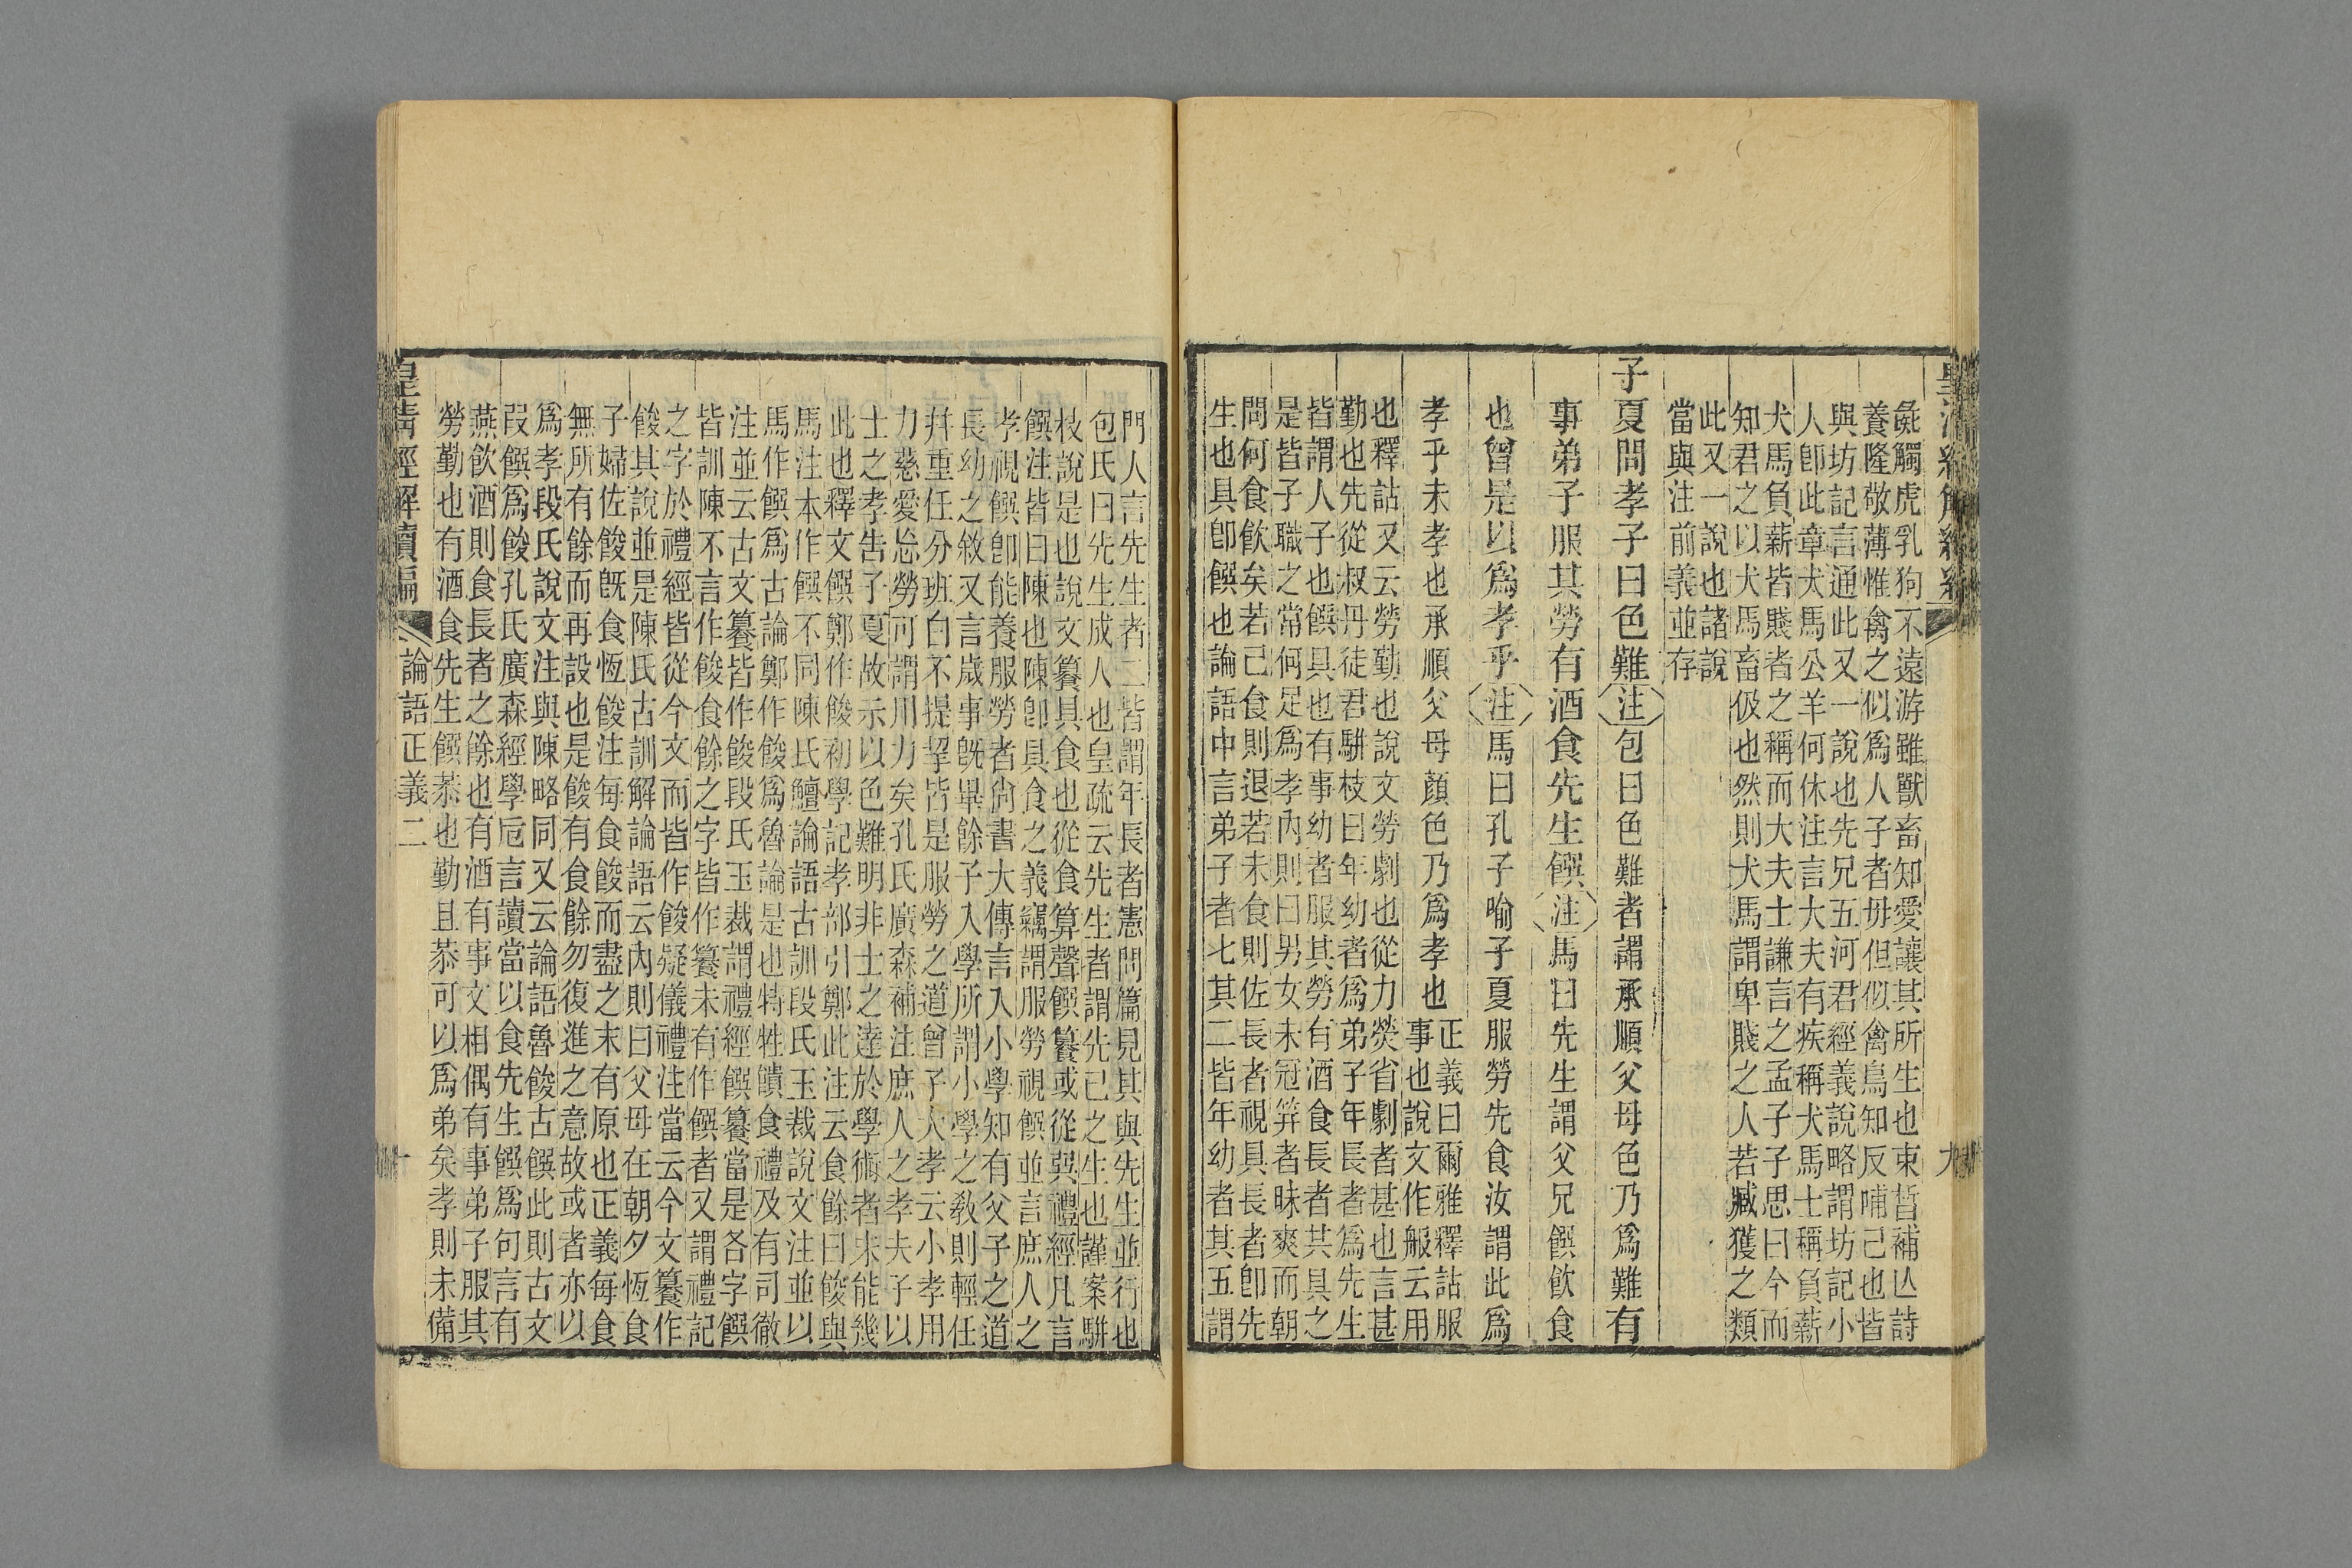 彘觸虎乳狗不遠游雖獸畜知愛讓其所生也束晳補亾詩
養隆敬薄惟禽之似爲人子者毋但似禽鳥知反哺己也皆
與坊記言通此又一說也先兄五河君經義說略謂坊記小
人卽此章犬馬公羊何休注言大夫有疾稱犬馬士稱負薪
犬馬負薪皆賤者之稱而大夫士謙言之孟子子思曰今而
知君之以犬馬畜伋也然則犬馬謂卑賤之人若臧獲之類
此又一說也諸說
當與注前義並存
子夏問孝子曰色難注包曰色難者謂承順父母色乃爲難有
事弟子服其勞有酒食先生饌注馬曰先生謂父兄饌飲食
也曾是以爲孝乎注馬曰孔子喻子夏服勞先食汝謂此爲
孝乎未孝也承順父母顏色乃爲孝也正義曰爾雅釋詁服
事也說文作㕟云用
也釋詁又云勞勤也說文勞劇也從力熒省劇者甚也言甚
勤也先從叔丹徒君騈枝曰年幼者爲弟子年長者爲先生
皆謂人子也饌具也有事幼者服其勞有酒食長者共具之
是皆子職之常何足爲孝內則曰男女未冠笄者昧爽而朝
問何食飲矣若已食則退若未食則佐長者視具長者卽先
生也具卽饌也論語中言弟子者七其二皆年幼者其五謂
門人言先生者二皆謂年長者憲問篇見其與先生並行也
包氏曰先生成人也皇疏云先生者謂先己之生也謹案騈
枝說是也說文籑具食也從食算聲饌籑或從巽禮經凡言
饌注皆曰陳也陳卽具食之義竊謂服勞視饌並言庶人之
孝視饌卽能養服勞者尙書大傳言入小學知有父子之道
長幼之敘又言歲事旣畢餘子入學所謂小學之敎則輕任
幷重任分班白不提挈皆是服勞之道曾子大孝云小孝用
力慈愛忘勞可謂用力矣孔氏廣森補注庶人之孝夫子以
士之孝告子夏故示以色難明非士之達於學術者未能幾
此也釋文饌鄭作餕初學記孝部引鄭此注云食餘曰餕與
馬注本作饌不同陳氏鱣論語古訓段氏玉裁說文注並以
馬作饌爲古論鄭作餕爲魯論是也特牲饋食禮及有司徹
注並云古文籑皆作餕段氏玉裁謂禮經饌籑當是各字饌
皆訓陳不言作餕食餘之字皆作籑未有作饌者又謂禮記
之字於禮經皆從今文而皆作餕疑儀禮注當云今文籑作
餕其說並是陳氏古訓解論語云內則曰父母在朝夕恆食
子婦佐餕旣食恆餕注每食餕而盡之末有原也正義每食
無所有餘而再設也是餕有食餘勿復進之意故或者亦以
爲孝段氏說文注與陳略同又云論語魯餕古饌此則古文
叚饌爲餕孔氏廣森經學卮言讀當以食先生饌爲句言有
燕飲酒則食長者之餘也有酒有事文相偶有事弟子服其
勞勤也有酒食先生饌恭也勤且恭可以爲弟矣孝則未備
皇清經解續編 論語正義二